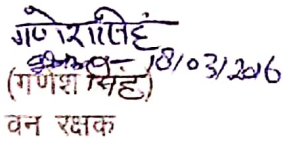 गणेशसिंह
18/03/2016
(गणेश सिंह)
वन रक्षक